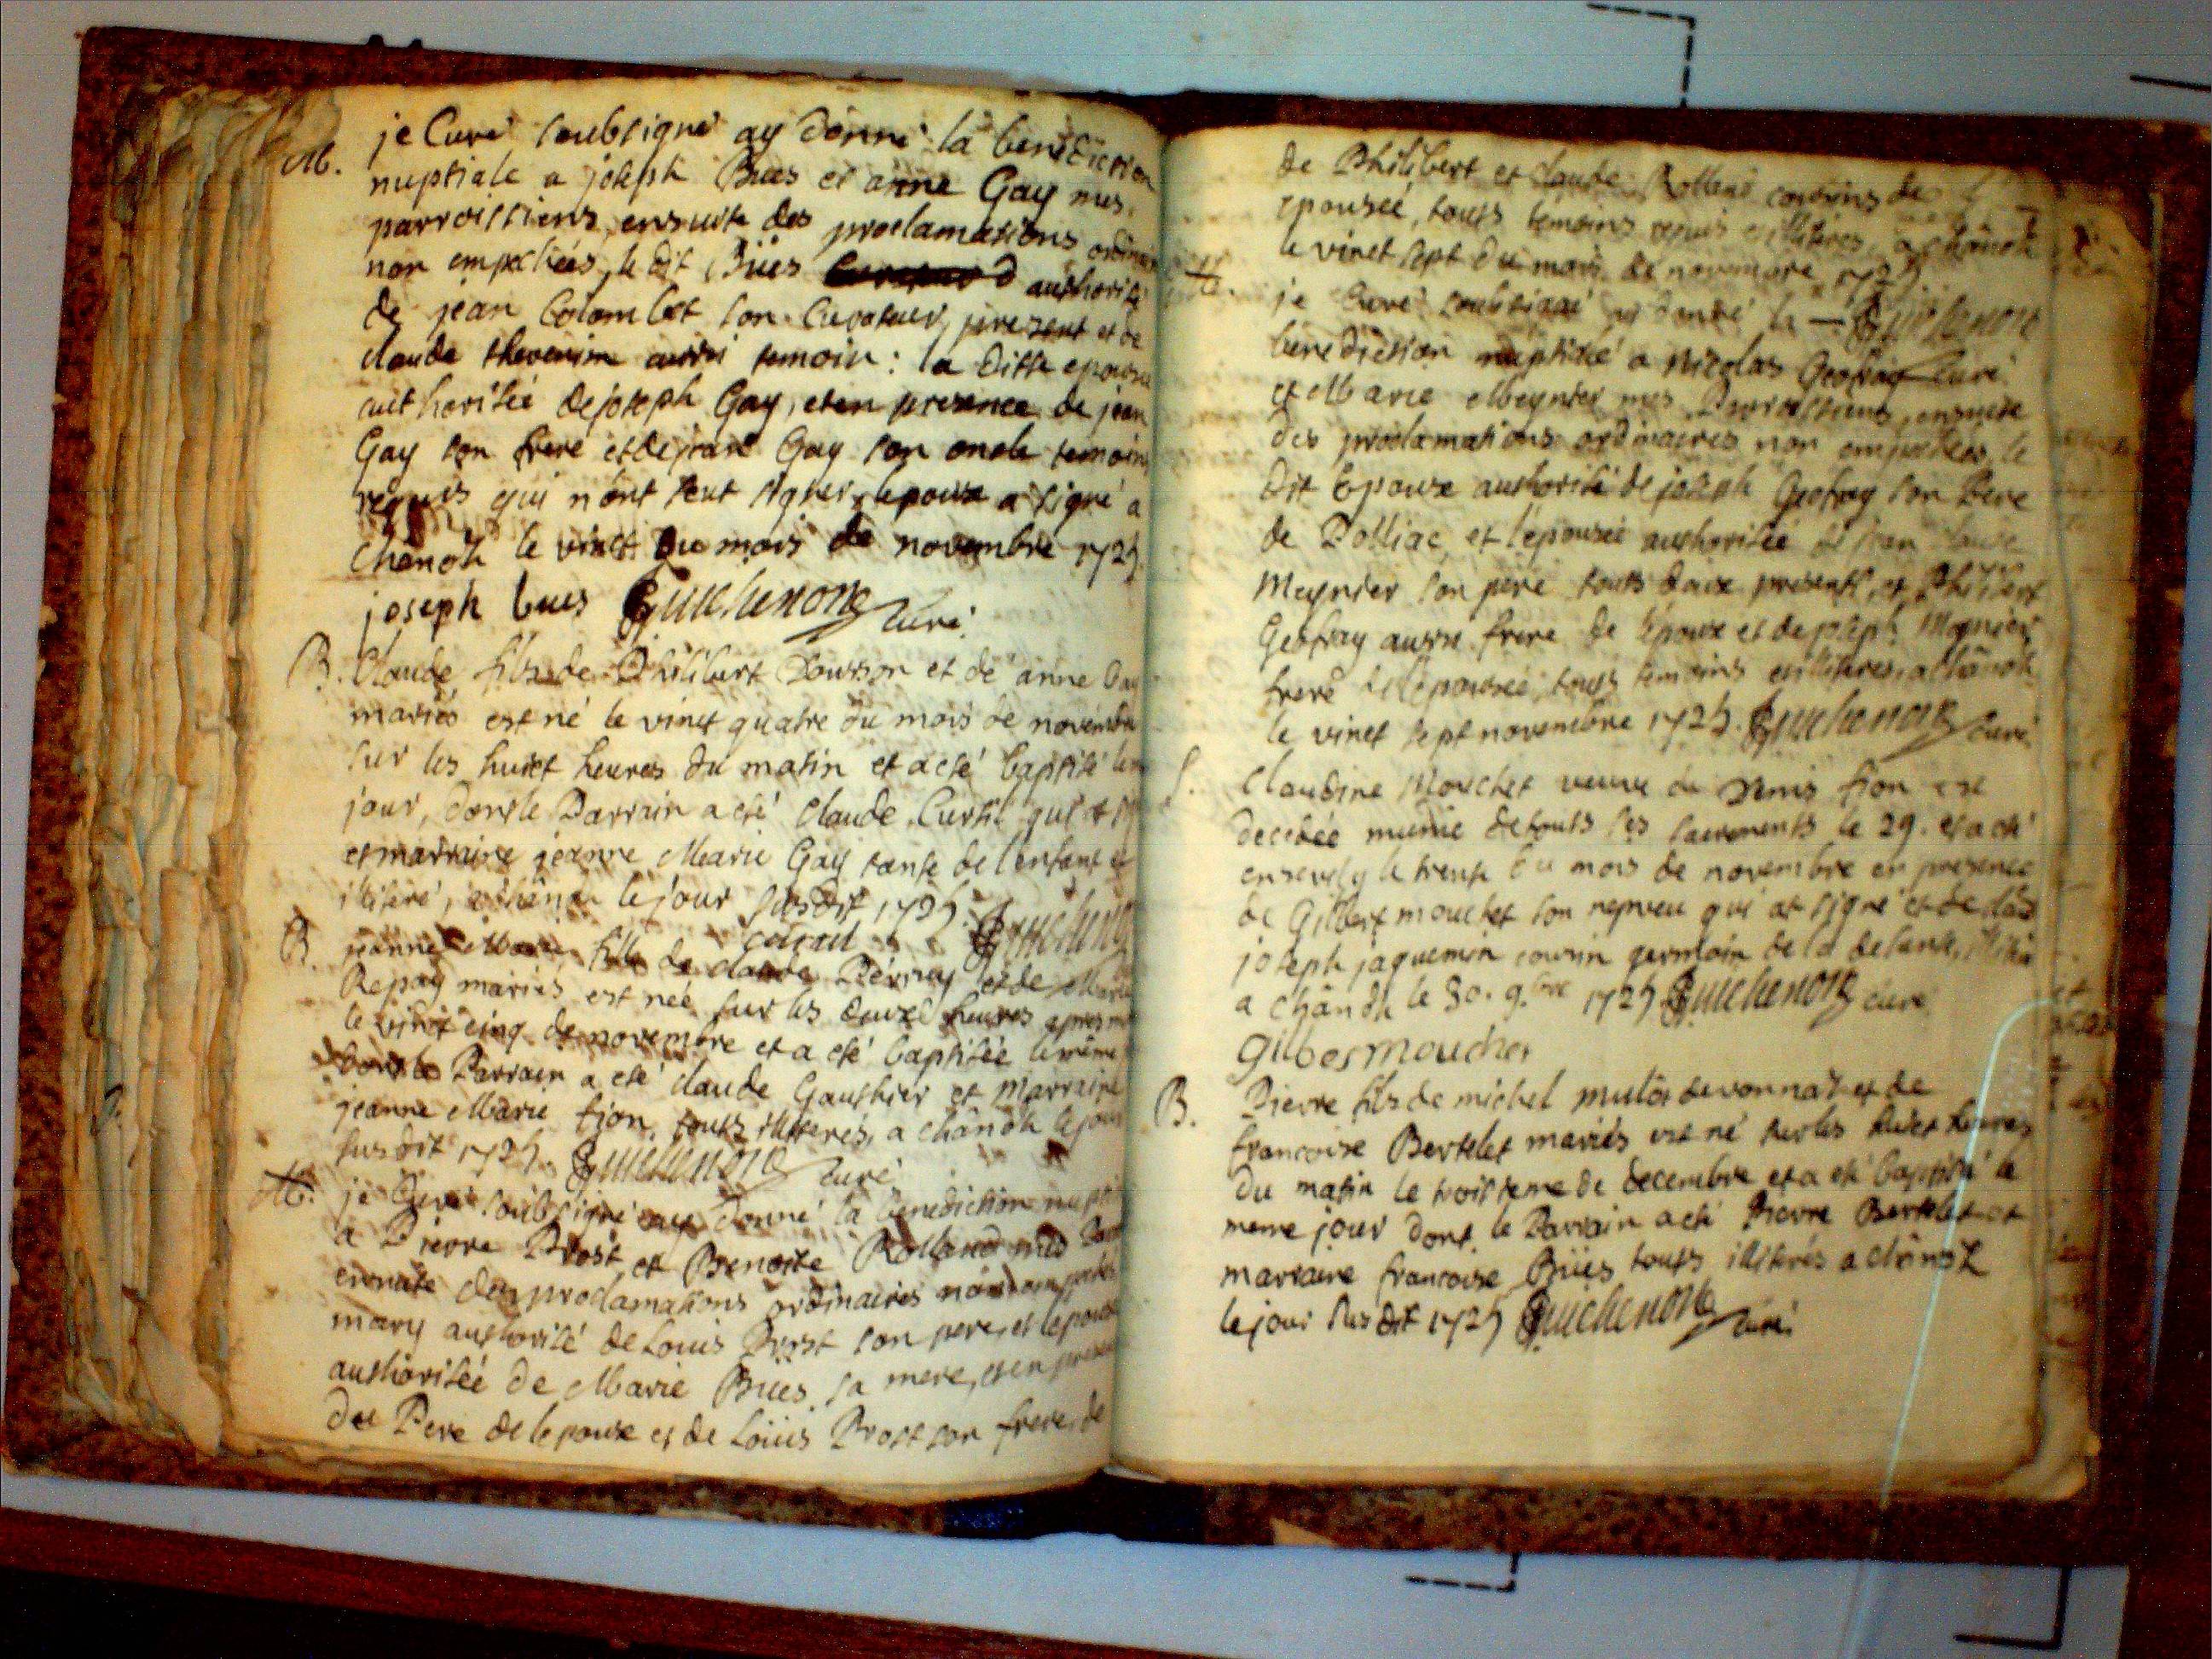 M. je Curé soubsigné ay donné la benediction
nuptiale a joseph Bües et anne Gay mes
parroissiens, ensuite des proclamations ordinai
non empechées, le dit Büés authorisé
de jean Colombet son Curateur, present et de
claude thevenin aussi temoin: la ditte epouse
authorisée de joseph Gay, et en presence de jean
Gay son frere et de jean Gay son oncle temoins
requis qui n'ont sceut signer, lepoux a signé a
Chanoh le vinct du mois de novembre 1725
joseph bues Guichenon Curé
B. Claude fils de Philibert Dousson et de anne Gay
mariés est né le vinct quatre du mois de novembre
sur les huict heures du matin et a eté baptisé le m
jour, dont le Parrain a eté Claude Curtil qui
et marraine jeanne Marie Gay tante de l'enfant et
illiteré, a chânoh le jour susdit 1725. Guichenon
B. jeanne Marie fille de claude Pérruy et de Marie
Repay mariés est née sur les deux heures apres mi
le vinct cinq de novembre et a eté baptisée le même
dont le Parrain a eté claude Gauthier et Marraine
jeanne Marie fion, touts illiterés, a chânoh le jour
susdit 1725. Guichenon Curé
M. je Curé soubsigné ay donné la benediction nupti
a Pierre Prost et Benoite Rolland mes Parr
ensuite des proclamations ordinaires non empechées
mary authorisé de Louis Prost son pere, et lepouse
authorisée de Marie Bües, sa mere, et en presence
du Pere de lepoux et de Loüis Prost son frere, de
de Philibert et claude Rolland cousins de l'
epousée, touts temoins requis et illiteres, a chânoh
le vinct sept du mois de novembre 1725
M. je Curé soubsigné ay donné la — Guichenon
benediction nuptiale a Nicolas Geofray Curé
et Marie Meynier mes Parroissiens, ensuite
des proclamations ordinaires non empechées, le
dit Epoux authorisé de joseph Geofray son Pere
de Polliac, et l'epousée authorisée de jean claude
Meynier son pere touts deux presents, et Philibert
Geofray aussi frere de l'epoux et de joseph Meynier
frere de l'epousée, touts temoins et illiteres, a chânoh
le vinct sept novembre 1725. Guichenon Curé
S. Claudine Mouchet veuve de Denis fion est
decedée munie de touts ses sacrements le 29. et a eté
ensevely le trente du mois de novembre en presence
de Gilbert mouchet son nepveu qui at signé et de
joseph jaquemin cousin germain de la defunte,
a chânoh le 30. 9.bre 1725 Guichenon curé
Gilbes moucher
B. Pierre fils de michel mulot de vonnas et de
francoise Bertelet mariés est né sur les huict heures
du matin le troisieme de decembre et a eté baptisé le
meme jour dont le Parrain a eté Pierre Bertelet et
marraine francoise Büés touts illiterés a chânoh
le jour susdit 1725 Guichenon Curé